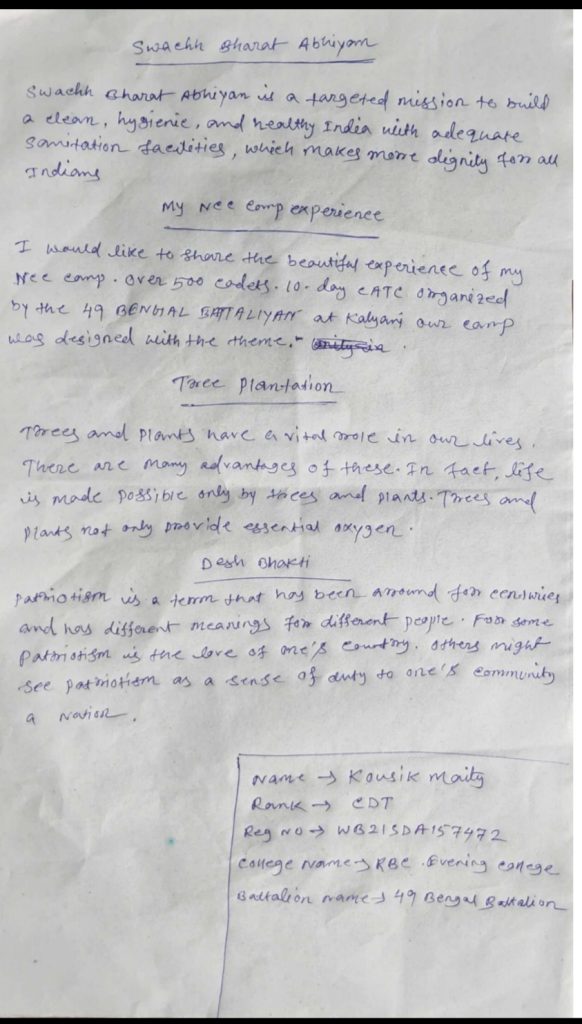 Swachh Bharat Abhiyan
Swachh Bharat Abhiyan is a targeted mission to build
a clean, hygienic, and healthy India with adequate
Sanitation facilities, which makes more dignity for all
Indians
My Ncc camp experience
I would like to share the beautiful experience of my
Ncc camp. Over 500 cadets. 10-day CATC organized
by the 49 BENGAL BATTALIYAN at Kalyani our camp
was designed with the theme.-
Tree Plantation
Trees and plants have a vital role in our lives.
There are many advantages of these. In fact, life
is made possible only by trees and plants. Trees and
plants not only provide essential oxygen.
Desh Bhakti
Patriotism is a term that has been around for centuries
and has different meanings for different people. For some
Patriotism is the love of one's country. Others might
see patriotism as a sense of duty to one's community
a Nation.
Name → Kousik Maity
Rank → CDT
Reg No → WB21SDA157472
College Name → RBC. Evening college
Battalion name → 49 Bengal Battalion